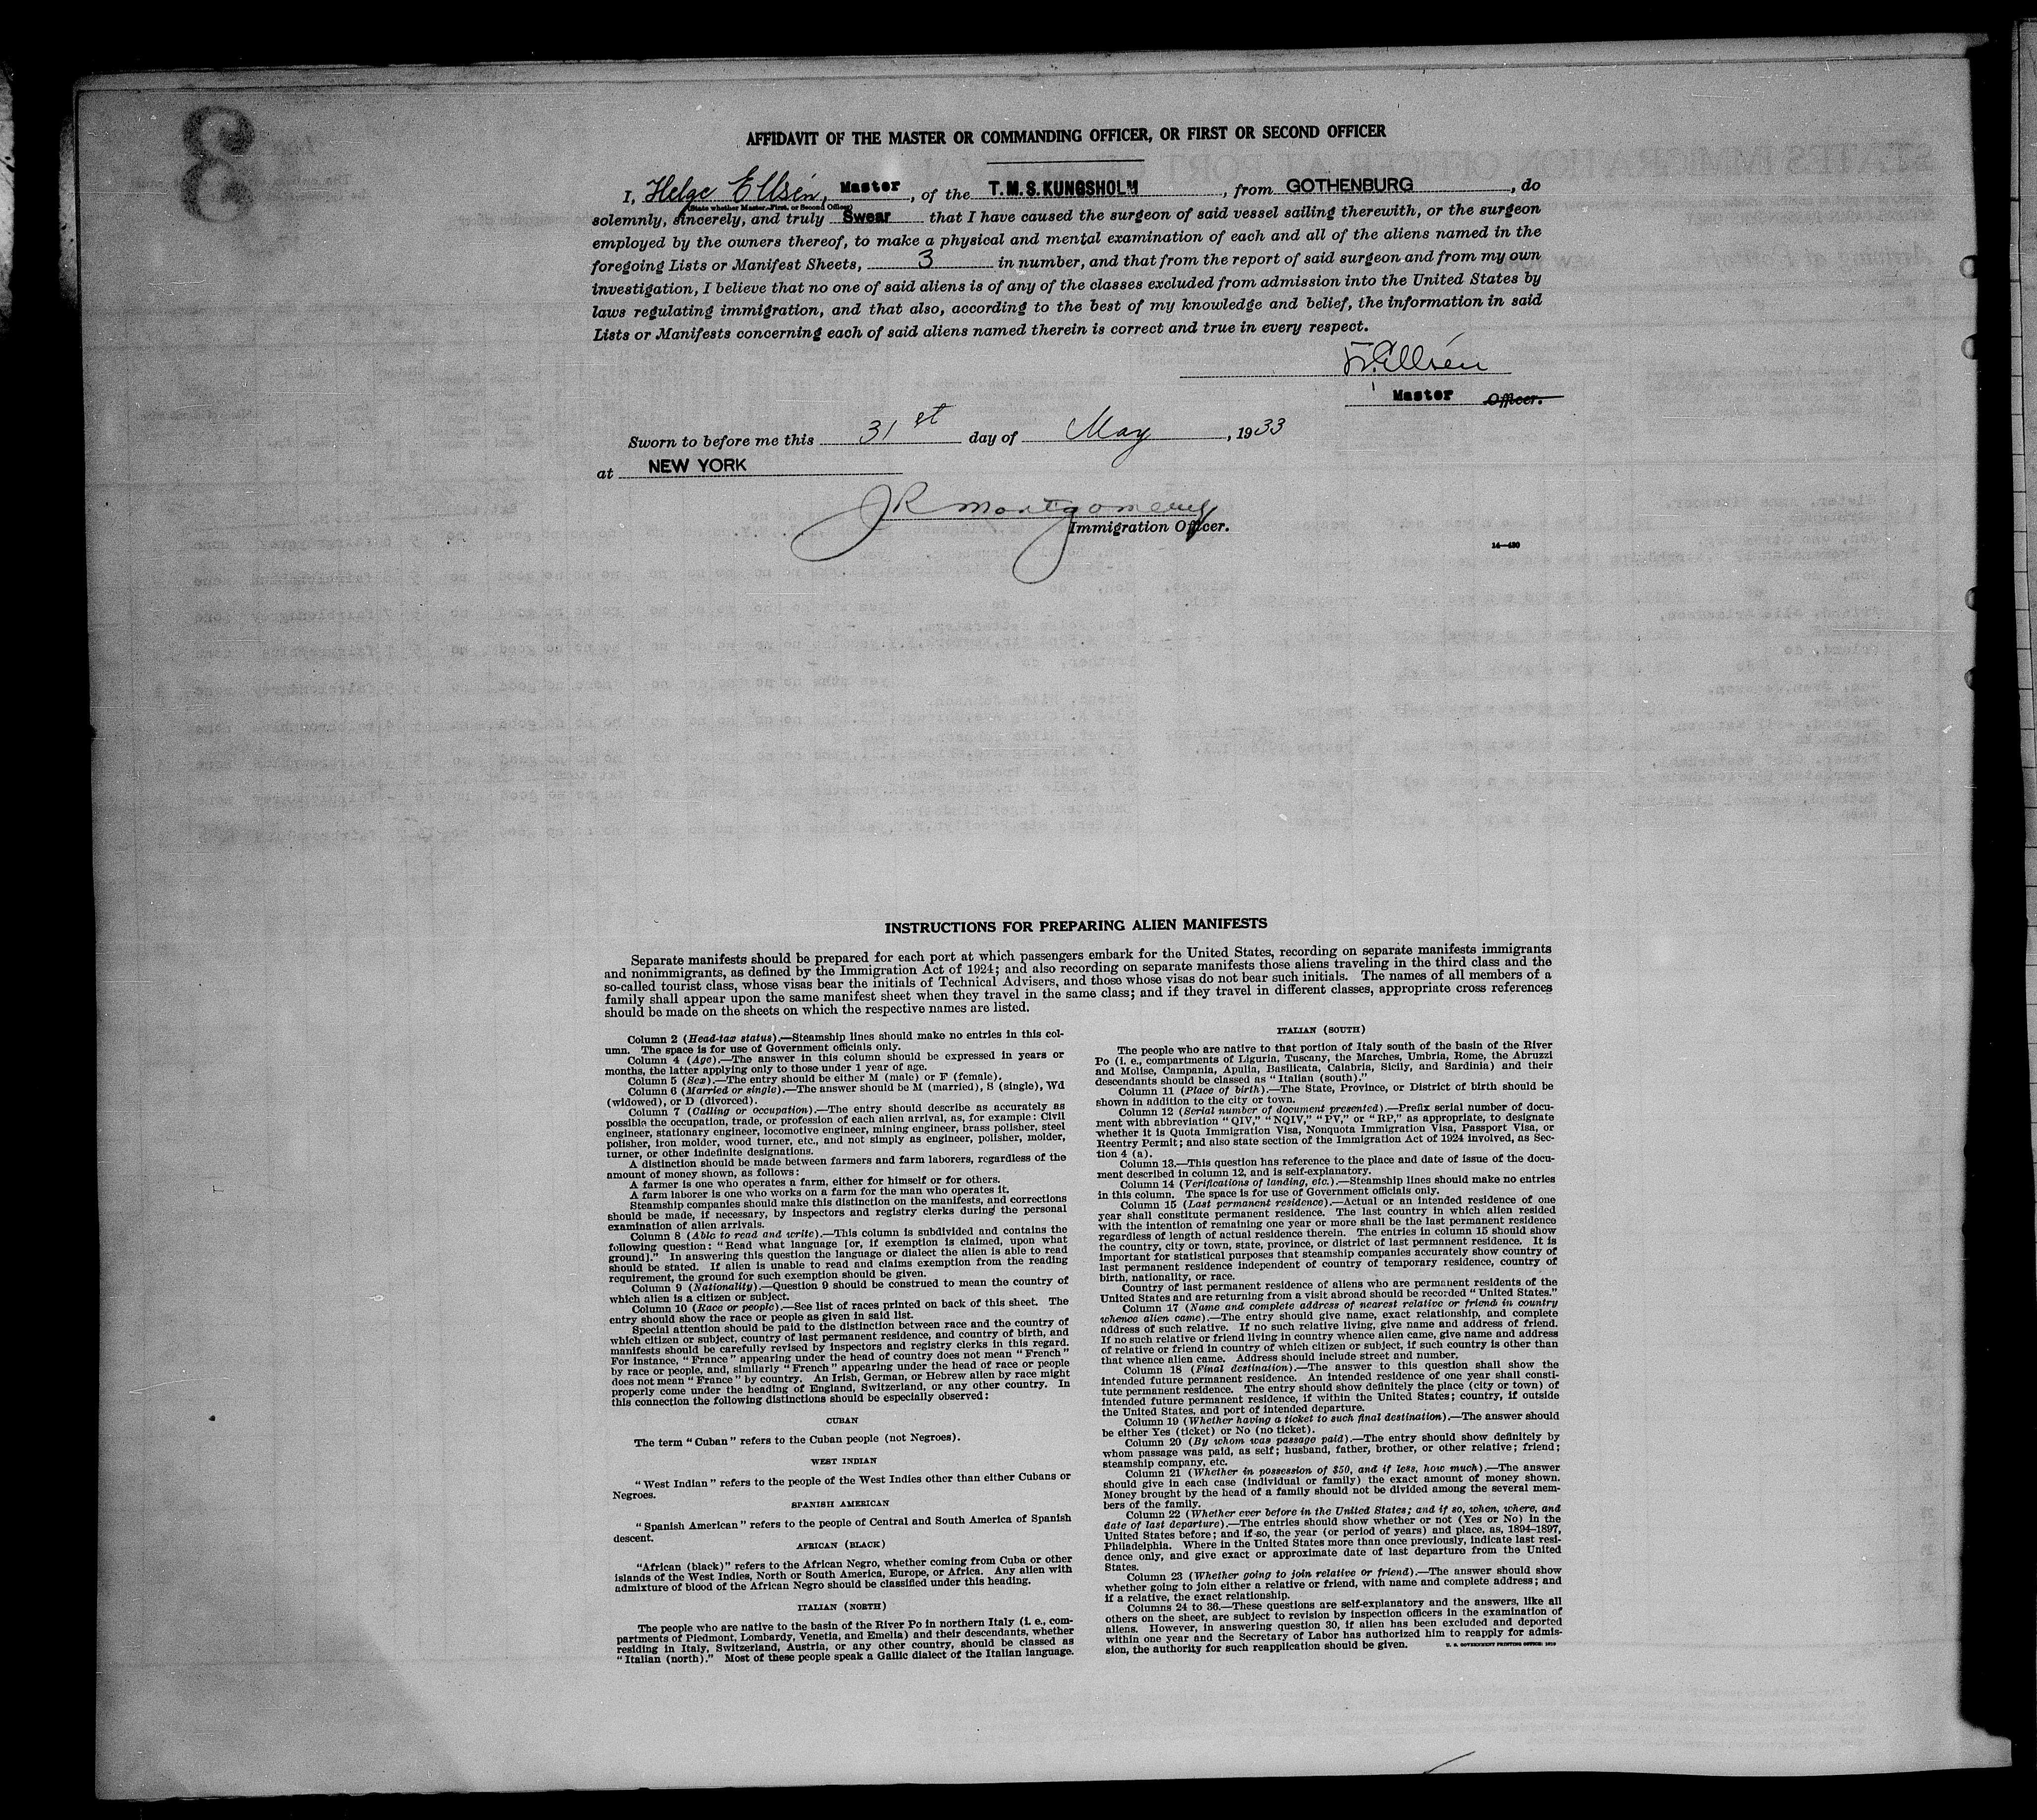 3
AFFIDAVIT OF THE MASTER OR COMMANDING OFFICER, OR FIRST OR SECOND OFFICER
I, Helge Ellsén, Master, of the T.M.S. KUNGSHOLM, from GOTHENBURG, do
(State whether Master, First, or Second Officer)
solemnly, sincerely, and truly Swear that I have caused the surgeon of said vessel sailing therewith, or the surgeon
employed by the owners thereof, to make a physical and mental examination of each and all of the aliens named in the
foregoing Lists or Manifest Sheets, 3 in number, and that from the report of said surgeon and from my own
investigation, I believe that no one of said aliens is of any of the classes excluded from admission into the United States by
laws regulating immigration, and that also, according to the best of my knowledge and belief, the information in said
Lists or Manifests concerning each of said aliens named therein is correct and true in every respect.
H. Ellsén
Master Officer.
Sworn to before me this 31st day of May, 1933
at NEW YORK
J R Montgomery
Immigration Officer.
14—430
INSTRUCTIONS FOR PREPARING ALIEN MANIFESTS
Separate manifests should be prepared for each port at which passengers embark for the United States, recording on separate manifests immigrants
and nonimmigrants, as defined by the Immigration Act of 1924; and also recording on separate manifests those aliens traveling in the third class and the
so-called tourist class, whose visas bear the initials of Technical Advisers, and those whose visas do not bear such initials. The names of all members of a
family shall appear upon the same manifest sheet when they travel in the same class; and if they travel in different classes, appropriate cross references
should be made on the sheets on which the respective names are listed.
Column 2 (Head-tax status).—Steamship lines should make no entries in this col-
umn. The space is for use of Government officials only.
Column 4 (Age).—The answer in this column should be expressed in years or
months, the latter applying only to those under 1 year of age.
Column 5 (Sex).—The entry should be either M (male) or F (female).
Column 6 (Married or single).—The answer should be M (married), S (single), Wd
(widowed), or D (divorced).
Column 7 (Calling or occupation).—The entry should describe as accurately as
possible the occupation, trade, or profession of each alien arrival, as, for example: Civil
engineer, stationary engineer, locomotive engineer, mining engineer, brass polisher, steel
polisher, iron molder, wood turner, etc., and not simply as engineer, polisher, molder,
turner, or other indefinite designations.
A distinction should be made between farmers and farm laborers, regardless of the
amount of money shown, as follows:
A farmer is one who operates a farm, either for himself or for others.
A farm laborer is one who works on a farm for the man who operates it.
Steamship companies should make this distinction on the manifests, and corrections
should be made, if necessary, by inspectors and registry clerks during the personal
examination of alien arrivals.
Column 8 (Able to read and write).—This column is subdivided and contains the
following question: "Read what language [or, if exemption is claimed, upon what
ground]." In answering this question the language or dialect the alien is able to read
should be stated. If alien is unable to read and claims exemption from the reading
requirement, the ground for such exemption should be given.
Column 9 (Nationality).—Question 9 should be construed to mean the country of
which alien is a citizen or subject.
Column 10 (Race or people).—See list of races printed on back of this sheet. The
entry should show the race or people as given in said list.
Special attention should be paid to the distinction between race and the country of
which citizen or subject, country of last permanent residence, and country of birth, and
manifests should be carefully revised by inspectors and registry clerks in this regard.
For instance, "France" appearing under the head of country does not mean "French"
by race or people, and, similarly "French" appearing under the head of race or people
does not mean "France" by country. An Irish, German, or Hebrew alien by race might
properly come under the heading of England, Switzerland, or any other country. In
this connection the following distinctions should be especially observed:
CUBAN
The term "Cuban" refers to the Cuban people (not Negroes).
WEST INDIAN
"West Indian" refers to the people of the West Indies other than either Cubans or
Negroes.
SPANISH AMERICAN
"Spanish American" refers to the people of Central and South America of Spanish
descent.
AFRICAN (BLACK)
"African (black)" refers to the African Negro, whether coming from Cuba or other
islands of the West Indies, North or South America, Europe, or Africa. Any alien with
admixture of blood of the African Negro should be classified under this heading.
ITALIAN (NORTH)
The people who are native to the basin of the River Po in northern Italy (i. e., com-
partments of Piedmont, Lombardy, Venetia, and Emelia) and their descendants, whether
residing in Italy, Switzerland, Austria, or any other country, should be classed as
"Italian (north)." Most of these people speak a Gallic dialect of the Italian language.
ITALIAN (SOUTH)
The people who are native to that portion of Italy south of the basin of the River
Po (i. e., compartments of Liguria, Tuscany, the Marches, Umbria, Rome, the Abruzzi
and Molise, Campania, Apulia, Basilicata, Calabria, Sicily, and Sardinia) and their
descendants should be classed as "Italian (south)."
Column 11 (Place of birth).—The State, Province, or District of birth should be
shown in addition to the city or town.
Column 12 (Serial number of document presented).—Prefix serial number of docu-
ment with abbreviation "QIV," "NQIV," "PV," or "RP," as appropriate, to designate
whether it is Quota Immigration Visa, Nonquota Immigration Visa, Passport Visa, or
Reentry Permit; and also state section of the Immigration Act of 1924 involved, as Sec-
tion 4 (a).
Column 13.—This question has reference to the place and date of issue of the docu-
ment described in column 12, and is self-explanatory.
Column 14 (Verifications of landing, etc.).—Steamship lines should make no entries
in this column. The space is for use of Government officials only.
Column 15 (Last permanent residence).—Actual or an intended residence of one
year shall constitute permanent residence. The last country in which alien resided
with the intention of remaining one year or more shall be the last permanent residence
regardless of length of actual residence therein. The entries in column 15 should show
the country, city or town, state, province, or district of last permanent residence. It is
important for statistical purposes that steamship companies accurately show country of
last permanent residence independent of country of temporary residence, country of
birth, nationality, or race.
Country of last permanent residence of aliens who are permanent residents of the
United States and are returning from a visit abroad should be recorded "United States."
Column 17 (Name and complete address of nearest relative or friend in country
whence alien came).—The entry should give name, exact relationship, and complete
address of such relative. If no such relative living, give name and address of friend.
If no such relative or friend living in country whence alien came, give name and address
of relative or friend in country of which citizen or subject, if such country is other than
that whence alien came. Address should include street and number.
Column 18 (Final destination).—The answer to this question shall show the
intended future permanent residence. An intended residence of one year shall consti-
tute permanent residence. The entry should show definitely the place (city or town) of
intended future permanent residence, if within the United States; country, if outside
the United States, and port of intended departure.
Column 19 (Whether having a ticket to such final destination).—The answer should
be either Yes (ticket) or No (no ticket).
Column 20 (By whom was passage paid).—The entry should show definitely by
whom passage was paid, as self; husband, father, brother, or other relative; friend;
steamship company, etc.
Column 21 (Whether in possession of $50, and if less, how much).—The answer
should give in each case (individual or family) the exact amount of money shown.
Money brought by the head of a family should not be divided among the several mem-
bers of the family.
Column 22 (Whether ever before in the United States; and if so, when, where, and
date of last departure).—The entries should show whether or not (Yes or No) in the
United States before; and if so, the year (or period of years) and place, as, 1894–1897,
Philadelphia. Where in the United States more than once previously, indicate last resi-
dence only, and give exact or approximate date of last departure from the United
States.
Column 23 (Whether going to join relative or friend).—The answer should show
whether going to join either a relative or friend, with name and complete address; and
if a relative, the exact relationship.
Columns 24 to 36.—These questions are self-explanatory and the answers, like all
others on the sheet, are subject to revision by inspection officers in the examination of
aliens. However, in answering question 30, if alien has been excluded and deported
within one year and the Secretary of Labor has authorized him to reapply for admis-
sion, the authority for such reapplication should be given.